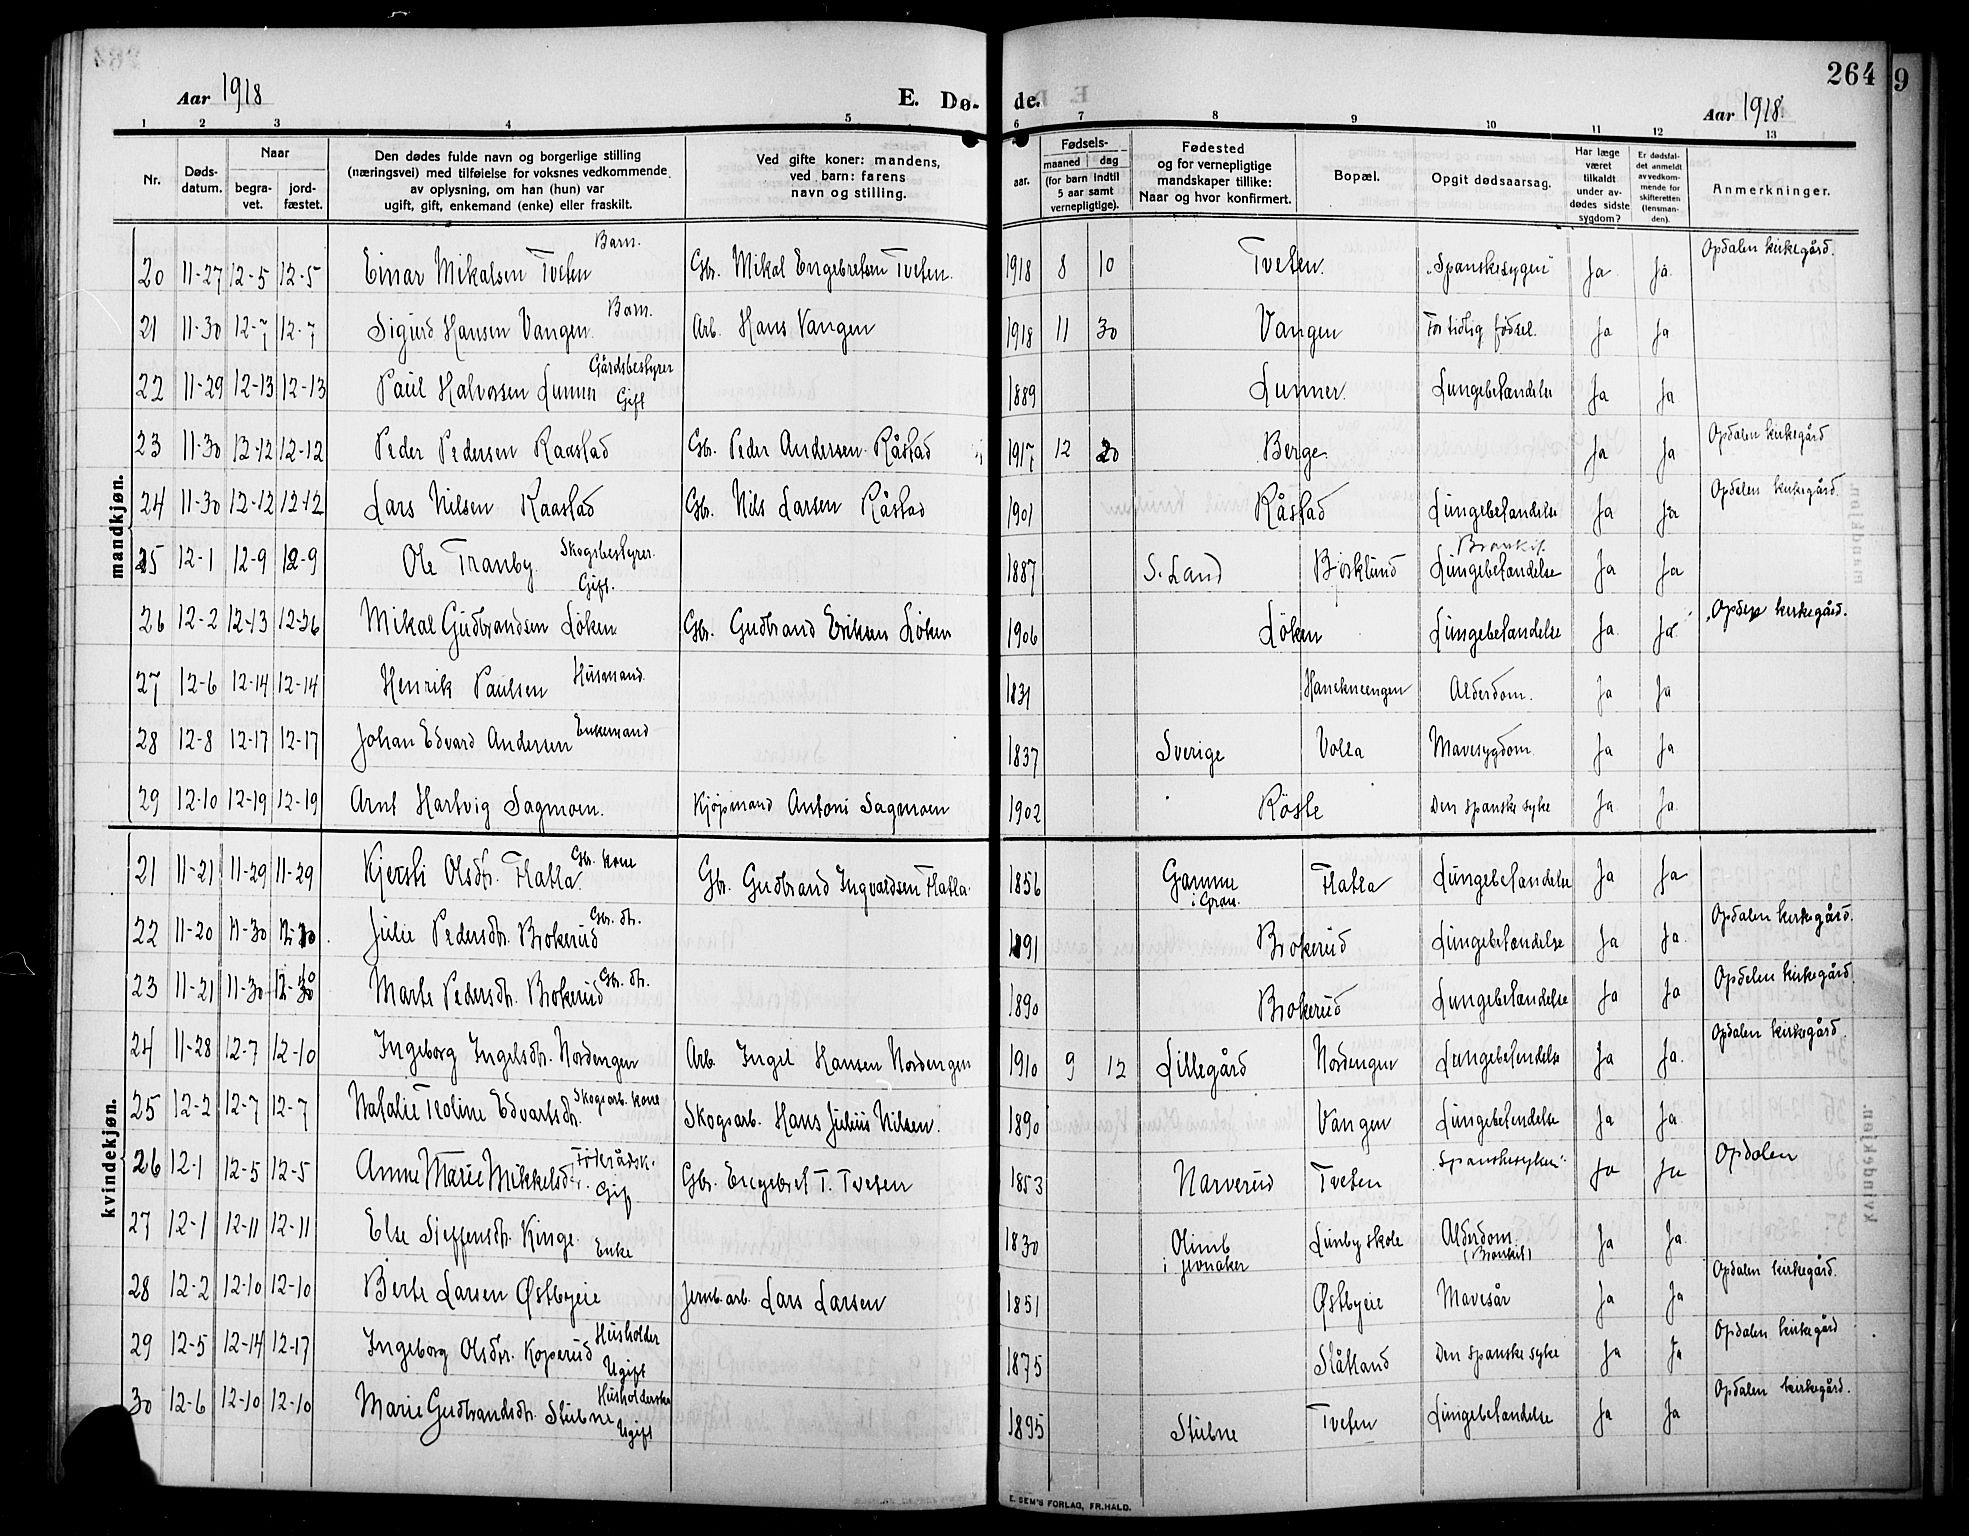 264
9
Aar 1918
E. Dø-
de.
Aar 1918
1 2 3 4 5 6 7 8 9 10 11 12 13
Nr.
Døds-
datum.
Naar
begra-
vet.
jord-
fæstet.
Den dødes fulde navn og borgerlige stilling
(næringsvei) med tilføielse for voksnes vedkommende
av oplysning, om han (hun) var
ugift, gift, enkemand (enke) eller fraskilt.
Ved gifte koner: mandens,
ved barn: farens
navn og stilling.
aar.
Fødsels-
maaned dag
(for barn indtil
5 aar samt
vernepligtige).
Fødested
og for vernepligtige
mandskaper tillike:
Naar og hvor konfirmert.
Bopæl.
Opgit dødsaarsag.
Har læge
været
tilkaldt
under av-
dødes sidste
sygdom?
Er dødsfal-
det anmeldt
av vedkom-
mende for
skifteretten
(lensman-
den).
Anmerkninger.
mandkjøn.
20 11-27 12-5 12-5 Einar Mikalsen Tveten Barn. Gbr. Mikal Engebretsen Tveten. 1918 8 10 Tveten. "Spanskesygen" Ja Ja Opdalen kirkegård.
21 11-30 12-7 12-7 Sigurd Hansen Vangen. Barn. Arb. Hans Vangen 1918 11 30 Vangen For tidlig fødsel. Ja Ja
22 11-29 12-13 12-13 Paul Halvorsen Lunner Gårdsbestyrer Gift 1889 Lunner. Lungebetændelse Ja Ja
23 11-30 12-12 12-12 Peder Pedersen Raastad Gbr. Peder Andersen Råstad 1917 12 20 Berge. Ja Ja Opdalen kirkegård
24 11-30 12-12 12-12 Lars Nilsen Raastad Gbr. Nils Larsen Råstad 1901 Råstad Lungebetændelse Ja Ja Opdalen kirkegård.
25 12-1 12-9 12-9 Ole Tranby. Skogsbestyrer. Gift. 1887 S. Land Bjørklund Bronkit. Lungebetændelse Ja Ja
26 12-2 12-13 12-26 Mikal Gudbrandsen Løken Gbr. Gudbrand Eriksen Løken 1906 Løken Lungebetændelse Ja Ja kirkegård.
27 12-6 12-14 12-14 Henrik Paulsen Husmand. 1831 Hanekneengen Alderdom. Ja Ja
28 12-8 12-17 12-17 Johan Edvard Andersen Enkemand 1837 Sverige Volla Mavesygdom. Ja Ja
29 12-10 12-19 12-19 Arnt Hartvig Sagmoen. Kjøpmand Antoni Sagmoen 1902 Røste Den spanske syke Ja Ja.
kvindekjøn.
21 11-21 11-29 11-29 Kjersti Olsdtr. Flatla. Gbr. kone Gbr. Gudbrand Ingvaldsen Flatla. 1856 Gamme i Gran. Flatla Lungebetændelse Ja Ja
22 11-20 11-30 12-10 Julie Pedersdtr. Brokerud Gbr. dtr. 1891 Brokerud Lungebetændelse Ja Ja. Opdalen kirkegård.
23 11-21 11-30 12-10 Marte Pedersdtr. Brokerud Gbr. dtr. 1890 Brokerud Lungebetændelse Ja Ja Opdalen kirkegård.
24 11-28 12-7 12-10 Ingeborg Ingelsdtr. Nordengen Arb. Ingel Hansen Nordengen 1910 9 12 Lillegård Nordengen Lungebetændelse Ja Ja. Opdalen kirkegård.
25 12-2 12-7 12-7 Natalie Teoline Edvartsdtr. Skogsarb. kone Skogsarb. Hans Julius Nilsen. 1890 Vangen Lungebetændelse Ja Ja.
26 12-1 12-5 12-5 Anne Marie Mikkelsdtr. Føderådsk. Gift Gbr. Engebret T. Tveten 1853 Narverud Tveten Spanskesyken". Ja Ja Opdalen
27 12-1 12-11 12-11 Else Steffensdtr. Kinge. Enke 1830 Olimb i Jevnaker Lunby skole Alderdom (Bronkit) Ja Ja
28 12-2 12-10 12-10 Berte Larsen Østbyeie Jernb.arb. Lars Larsen 1851 Østbyeie Mavesår Ja Ja Opdalen kirkegård.
29 12-5 12-14 12-17 Ingeborg Olsdtr. Koperud Husholder Ugift 1875 Slåtland Den spanske syke Ja Ja Opdalen kirkegård
30 12-6 12-10 12-10 Marie Gudbrandsdtr. Stubne Husholderske Ugift 1895 Stubne Tveten Lungebetændelse Ja Ja Opdalen kirkegård.
E. SEM'S FORLAG, FR.HALD.